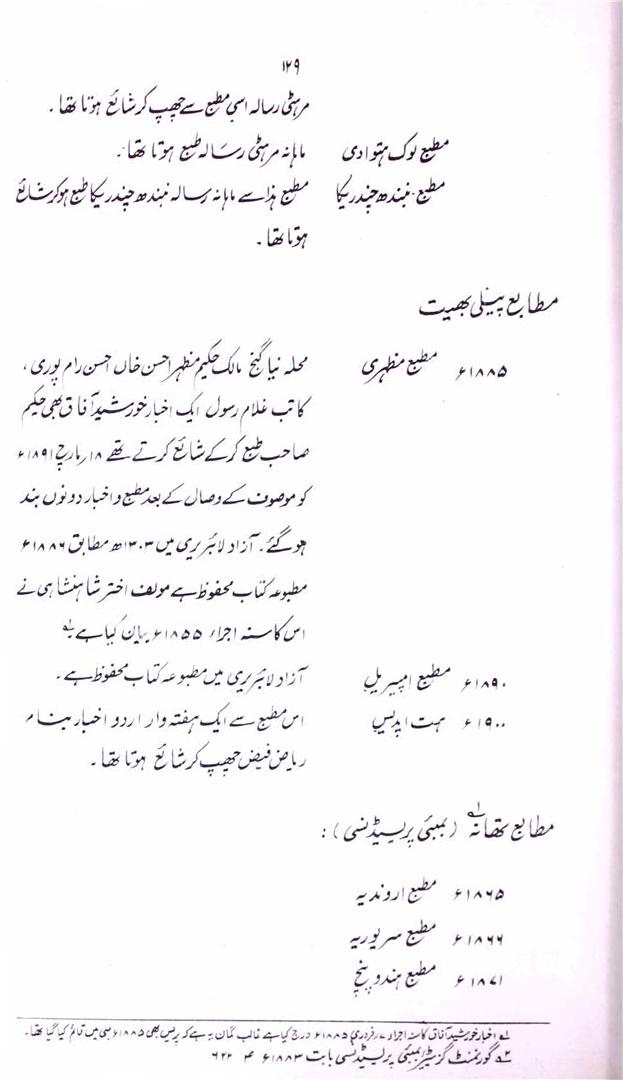 ۱۲۹
مرہٹی رسالہ اسی مطبع سے چھپ کر شائع ہوتا تھا۔
مطبع لوک ہتوادی ماہانہ مرہٹی رسالہ طبع ہوتا تھا۔
مطبع نبندھ چندریکا مطبع ہذا سے ماہانہ رسالہ نبندھ چندریکا طبع ہو کر شائع
ہوتا تھا۔
مطابع پیلی بھیت
۱۸۸۵ء مطبع مظہری محلہ نیا گنج مالک حکیم مظہر احسن خاں احسن رام پوری،
کاتب غلام رسول ایک اخبار خورشید آفاق بھی حکیم
صاحب طبع کر کے شائع کرتے تھے ۱۸ مارچ ۱۸۹۱ء
کو موصوف کے وصال کے بعد مطبع و اخبار دونوں بند
ہو گئے۔ آزاد لائبریری میں ۱۳۰۳ھ مطابق ۱۸۸۶ء
مطبوعہ کتاب محفوظ ہے مولف اختر شاہنشاہی نے
اس کا سنہ اجراء ۱۸۵۵ء بیان کیا ہے ۱؎
۱۸۹۰ء مطبع امپیریل آزاد لائبریری میں مطبوعہ کتاب محفوظ ہے۔
۱۹۰۰ء ہت اپدیس اس مطبع سے ایک ہفتہ وار اردو اخبار بنام
ریاض فیض چھپ کر شائع ہوتا تھا۔
مطابع تھانہ ۲؎ (بمبئی پریسیڈنسی):
۱۸۶۵ء مطبع اروندیہ
۱۸۶۶ء مطبع سریوریہ
۱۸۷۱ء مطبع ہندو پنچ
۱؎ اخبار خورشید آفاق کا سنہ اجراء ۷ فروری ۱۸۸۵ء درج کیا ہے غالب گمان یہ ہے کہ پریس بھی ۱۸۸۵ء ہی میں قائم کیا گیا تھا۔
۲؎ گورنمنٹ گزیٹر بمبئی پریسیڈنسی بابت ۱۸۸۳ء ۴ ۶۲۲